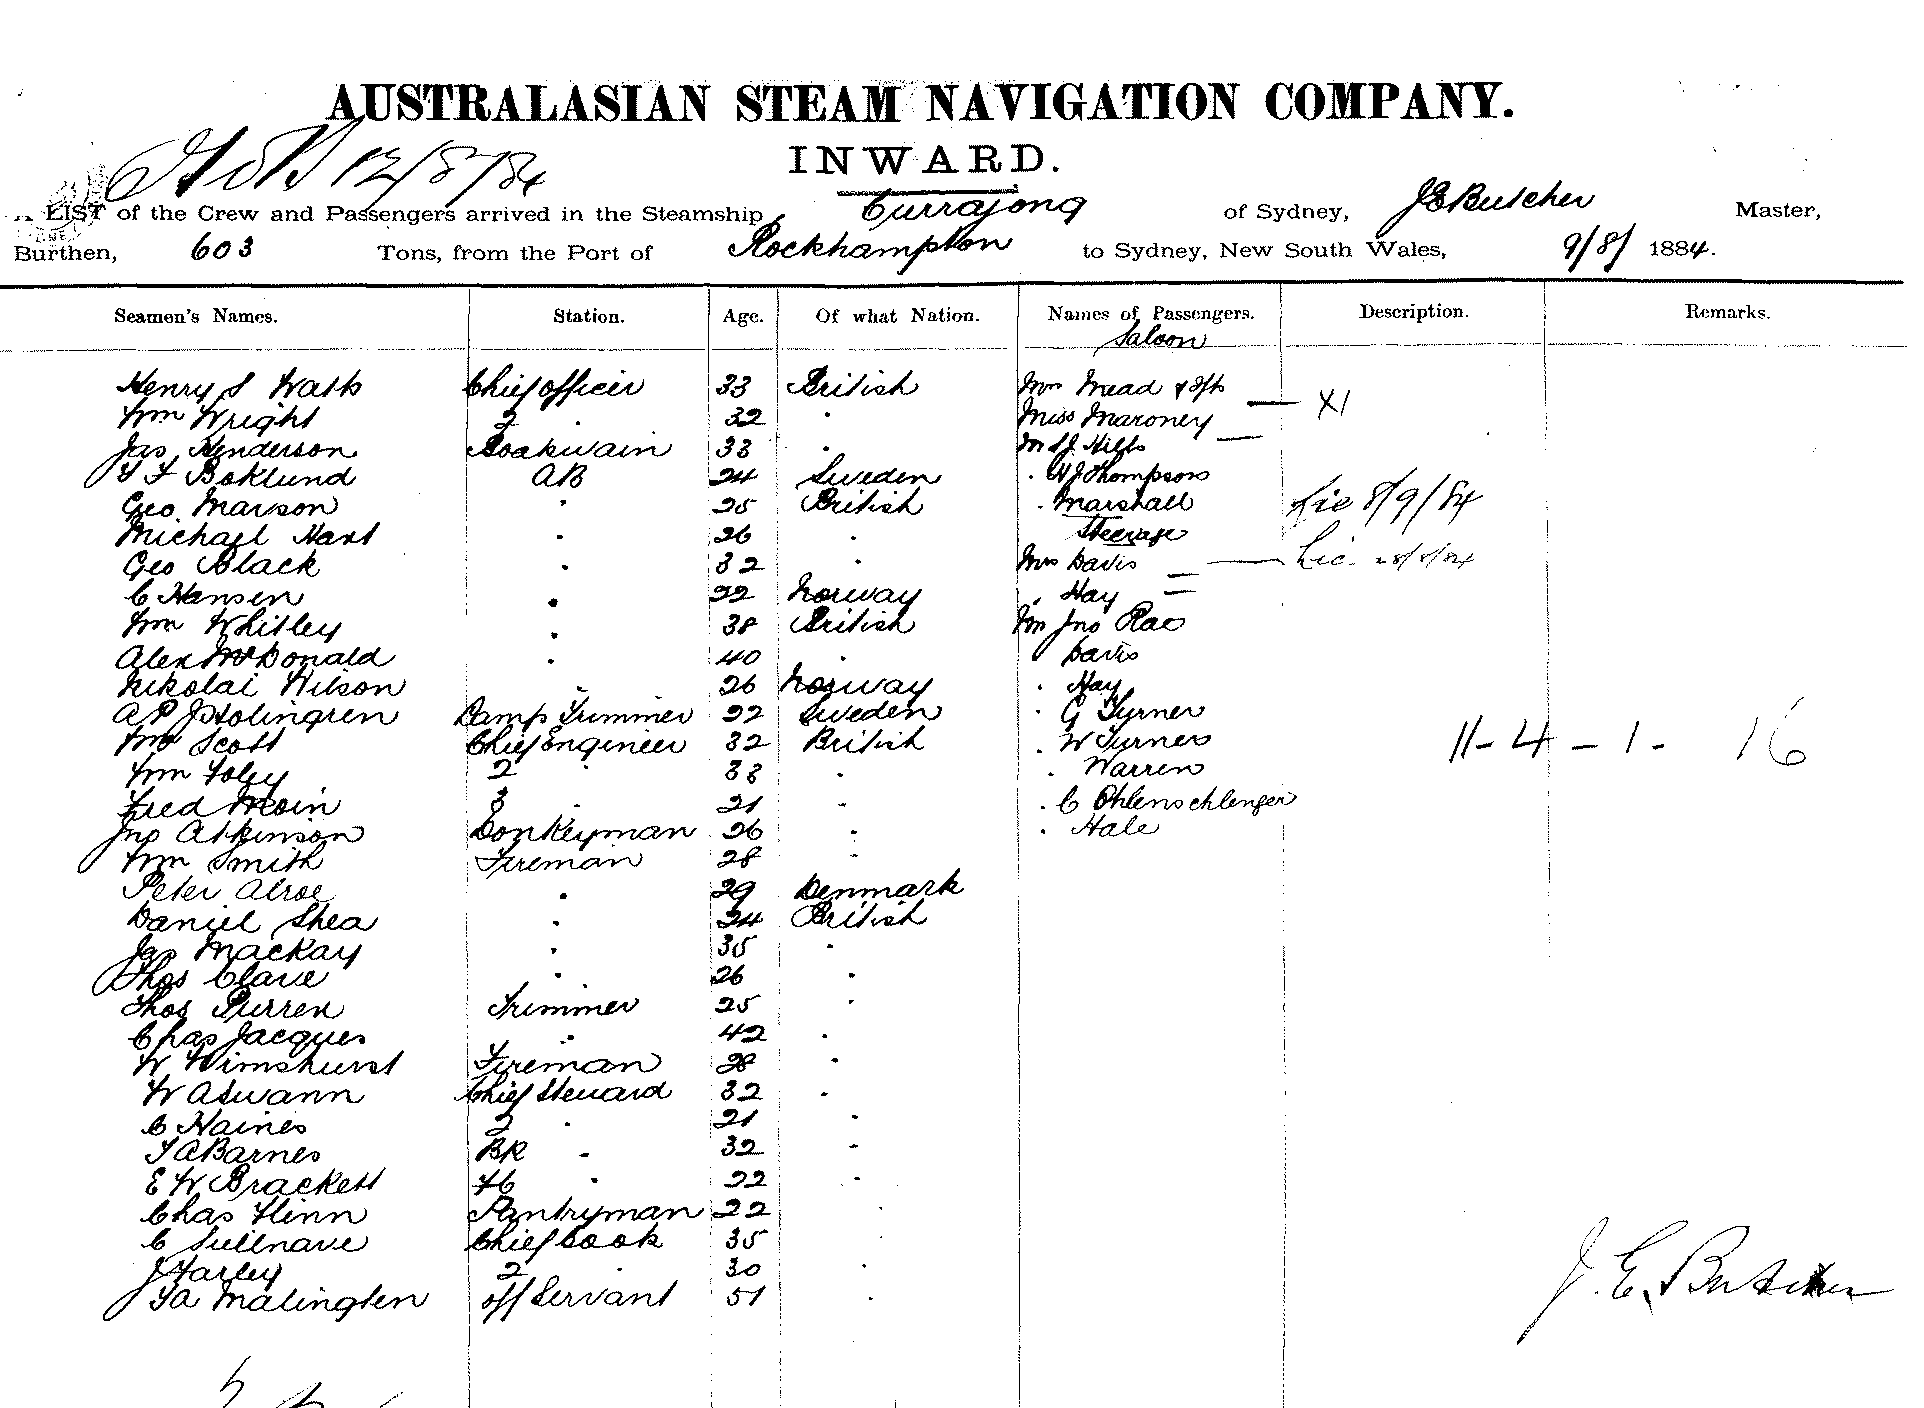 AUSTRALASIAN STEAM NAVIGATION COMPANY.
12/8/84
INWARD.
LIST of the Crew and Passengers arrived in the Steamship, Currajong of Sydney, J E Butcher Master,
Burthen, 603 Tons, from the Port of Rockhampton to Sydney, New South Wales, 9/8/ 1884.
Seamen's Names. Station. Age. Of what Nation. Names of Passengers. Description. Remarks.
Saloon
Henry S Chief officer 33 British Mrs Mead
Wm Wright 2 " 32 " Miss Maroney XI
Jas Henderson Boatswain 33 " Mr S J Hills
Boklund AB 24 Sweden " W J Thompson
Geo Marson " 25 British " Marshall Lic 8/9/84
Michael Hart " 26 " Steerage
Geo Black " 32 " Mrs Davis Lic
C Hansen " 22 Norway " Hay
Wm Whitley " 38 British Mr Jno Rae
Alex McDonald " 40 " " Davis
Nikolai Wilson " 26 Norway " Hay
A P Lamp Trimmer 22 Sweden " G Turner
Scott Chief Engineer 32 British " W Turner 11 - 4 - 1 - 16
Wm Foley 2 " 33 " " Warren
Fred Moin 3 " 21 " " C Ohlenschlenger
Jno Atkinson Donkeyman 26 " " Hale
Wm Smith Fireman 28 "
Peter Alroe " 29 Denmark
Daniel Shea " 24 British
Jas Mackay " 35 "
Thos Clave " 26 "
Thos Purren Trimmer 25 "
Chas Jacques " 42 "
W Wimshurst Fireman 28 "
W A Swann Chief Steward 32 "
C Haines 2 " 21 "
T A Barnes BR " 32 "
E W Brackett FC " 22 "
Chas Flinn Pantryman 22 "
C Chief Cook 35 "
J Farley 2 " 30 "
Malington off Servant 51 "
J. E. Butcher